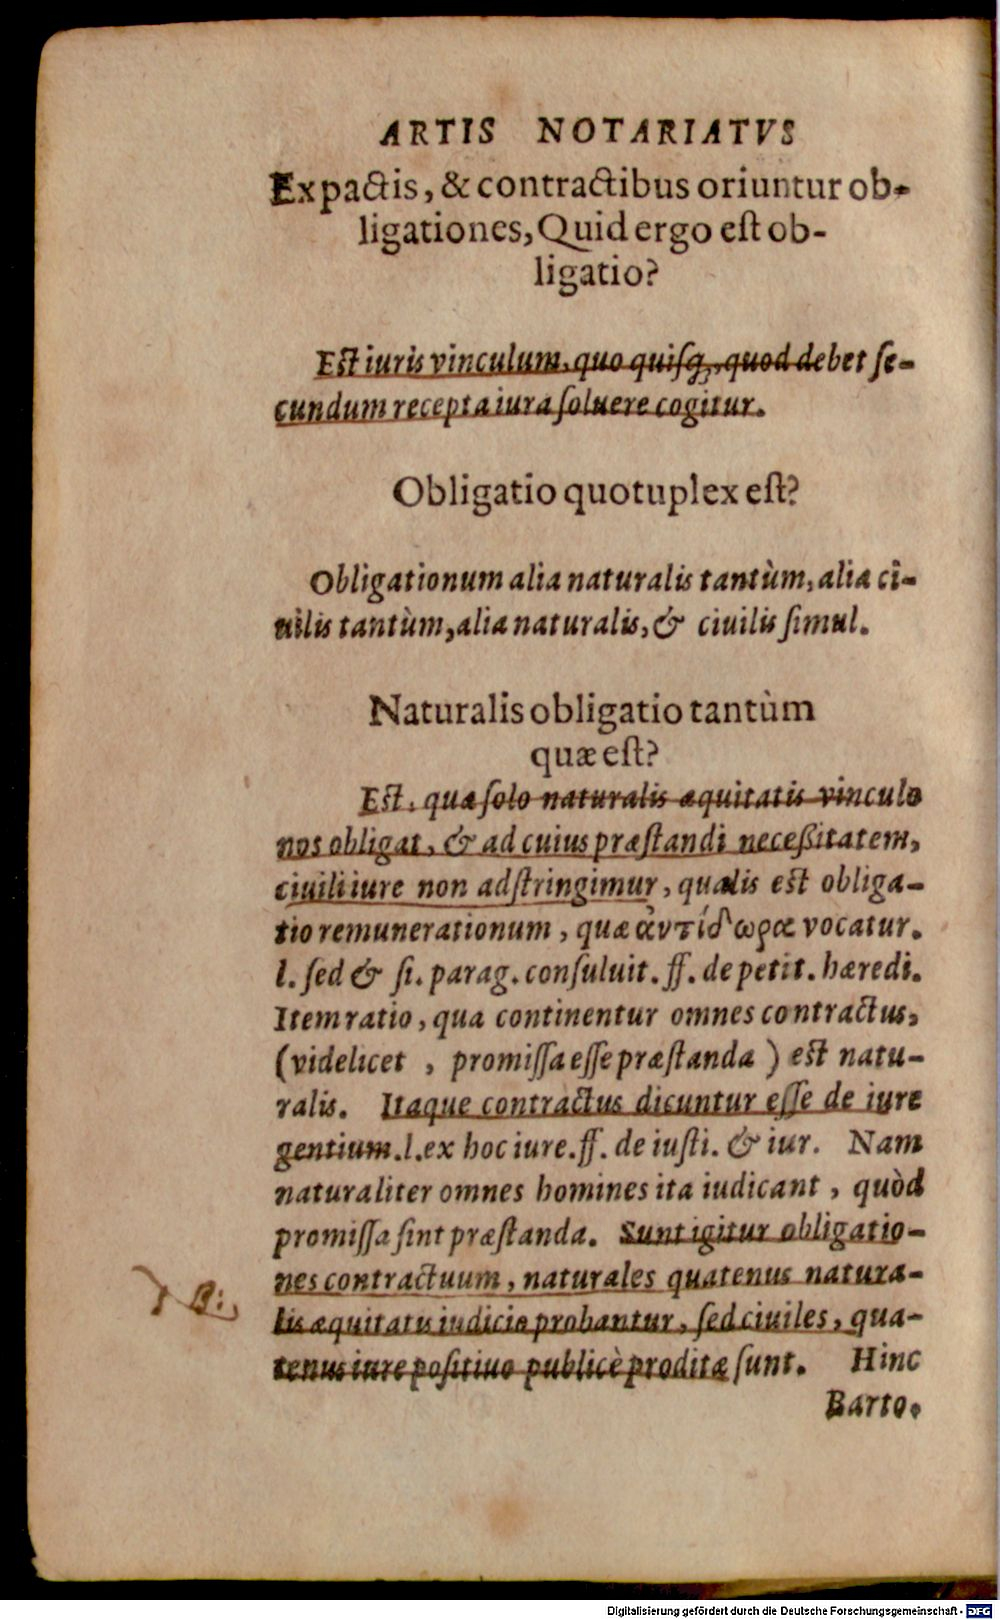 ARTIS NOTARIATVS
Ex pactis, & contractibus oriuntur ob-
ligationes, Quid ergo eſt ob-
ligatio?
Eſt iuris vinculum, quo quiſq;, quod debet ſe-
cundum recepta iura ſoluere cogitur.
Obligatio quotuplex eſt?
Obligationum alia naturalis tantùm, alia ci-
uilis tantùm, alia naturalis, & ciuilis ſimul.
Naturalis obligatio tantùm
quæ eſt?
Eſt, quæ ſolo naturalis æquitatis vinculo
nos obligat, & ad cuius præſtandi neceßitatem,
ciuili iure non adſtringimur, qualis eſt obliga-
tio remunerationum, quæ ἀντίδωρα vocatur.
l. ſed & ſi. parag. conſuluit. ff. de petit. hæredi.
Item ratio, qua continentur omnes contractus,
(videlicet, promiſſa eſſe præſtanda) eſt natu-
ralis. Itaque contractus dicuntur eſſe de iure
gentium. l. ex hoc iure. ff. de iuſti. & iur. Nam
naturaliter omnes homines ita iudicant, quòd
promiſſa ſint præſtanda. Sunt igitur obligatio-
nes contractuum, naturales quatenus natura-
lis æquitatis iudicio probantur, ſed ciuiles, qua-
tenus iure poſitiuo publicè proditæ ſunt. Hinc
Barto.
Digitalisierung gefördert durch die Deutsche Forschungsgemeinschaft - DFG